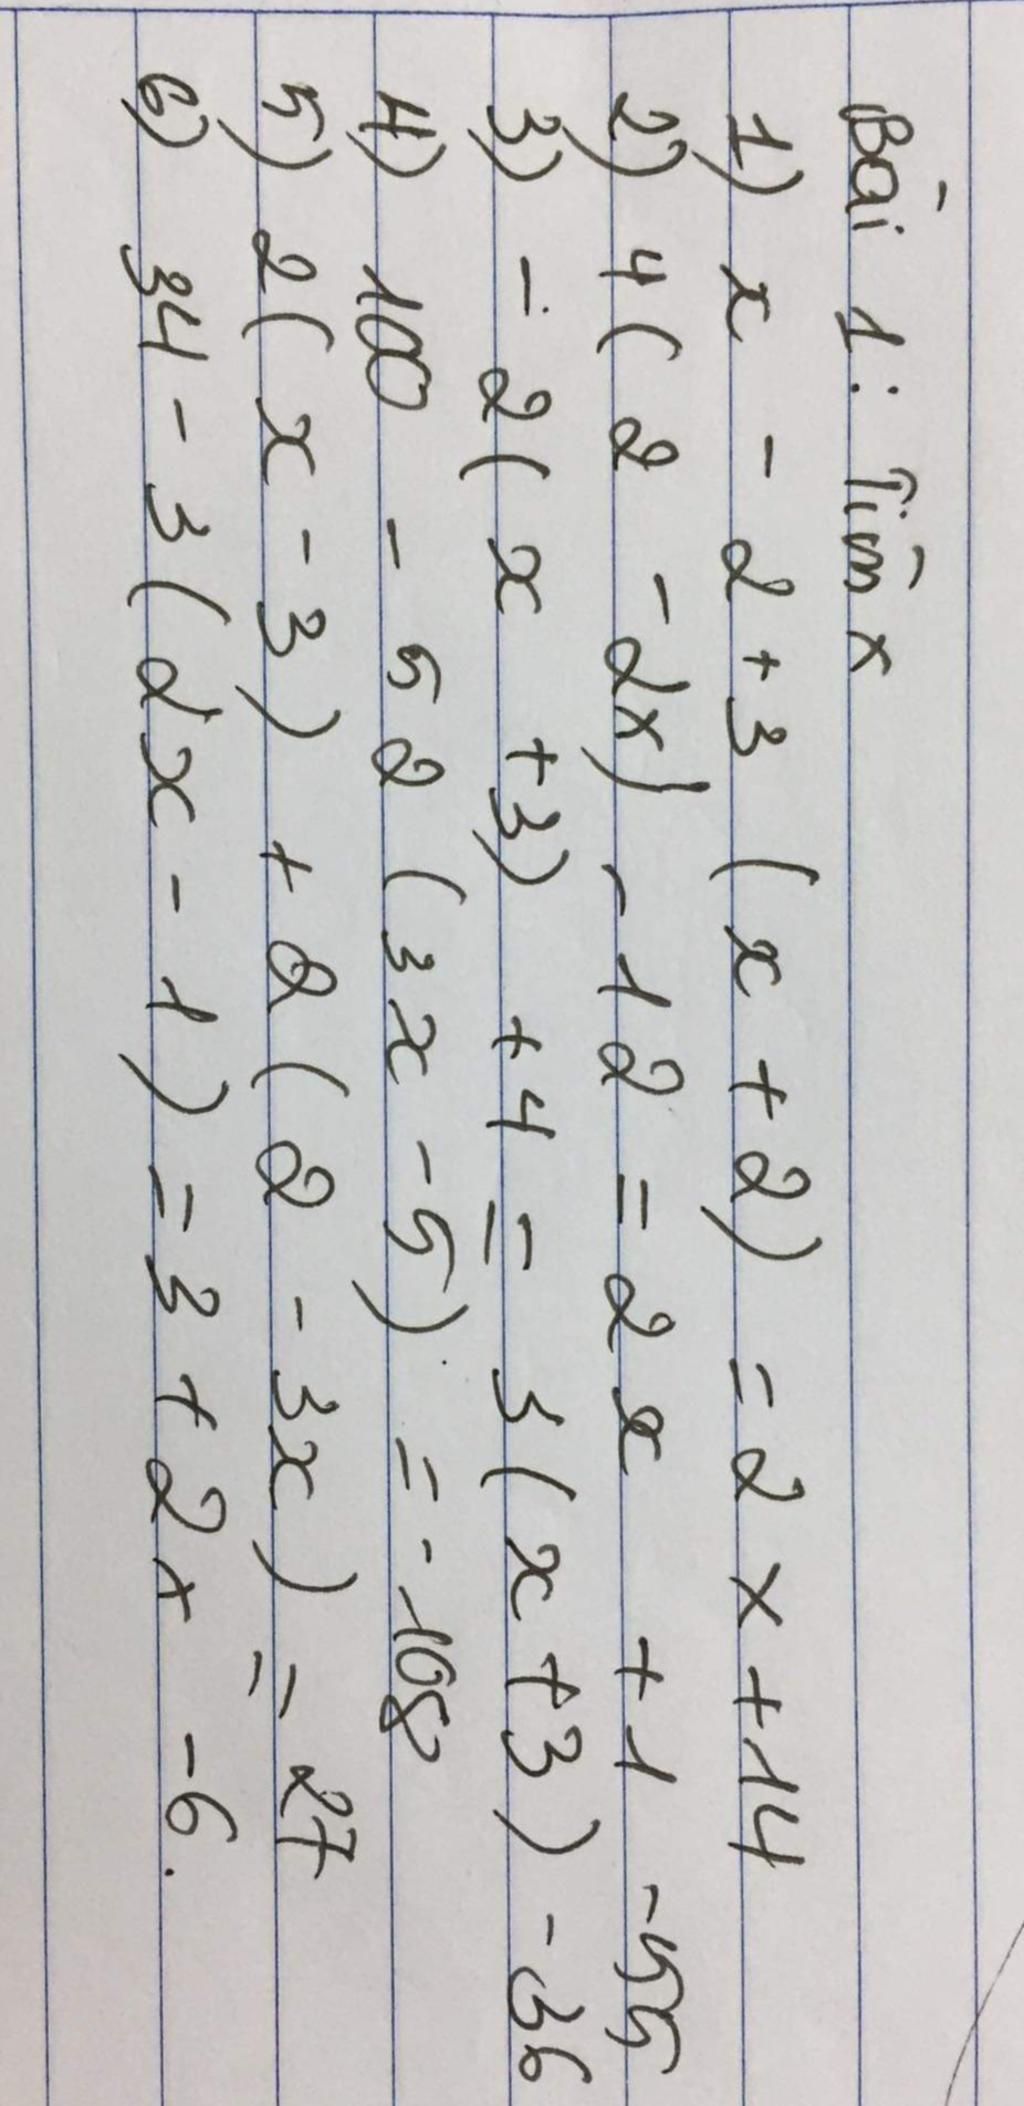 Bài 1: Tìm x
1) x - 2 + 3 (x + 2) = 2x + 14
2) 4 (2 - 2x) - 12 = 2x + 1 - 55
3) - 2 (x + 3) + 4 = 3 (x + 3) - 36
4) 100 - 52 (3x - 5) = - 108
5) 2 (x - 3) + 2 (2 - 3x) = 27
6) 34 - 3 (2x - 1) = 3 + 2x - 6.